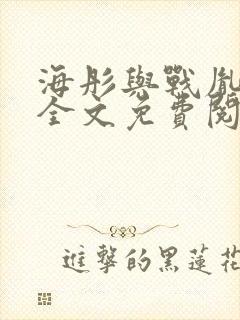 海彤與戰胤
全文免費閱
進擊的黑蓮花